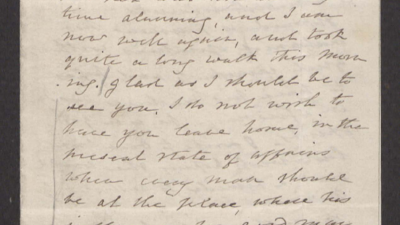 time alarming, and I am
now well again, and took
quite a long walk this morn
ing. glad as I should be to
see you. I do not wish to
have you leave home, in the
present state of affairs
when every man should
be at the place, where his